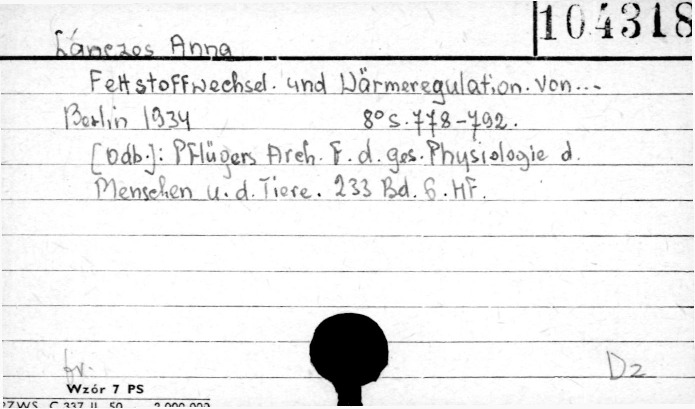 104318
Lánczos Anna
Fettstoffwechsel. und Wärmeregulation. von...
Berlin 1934 8° S. 778-792.
[Odb.]: Pflügers Arch. f. d. ges. Physiologie d.
Menschen u. d. Tiere. 233 Bd. 6. Hf.
fr. Dz
Wzór 7 PS
PZWS C 337 II 50 2.000.000